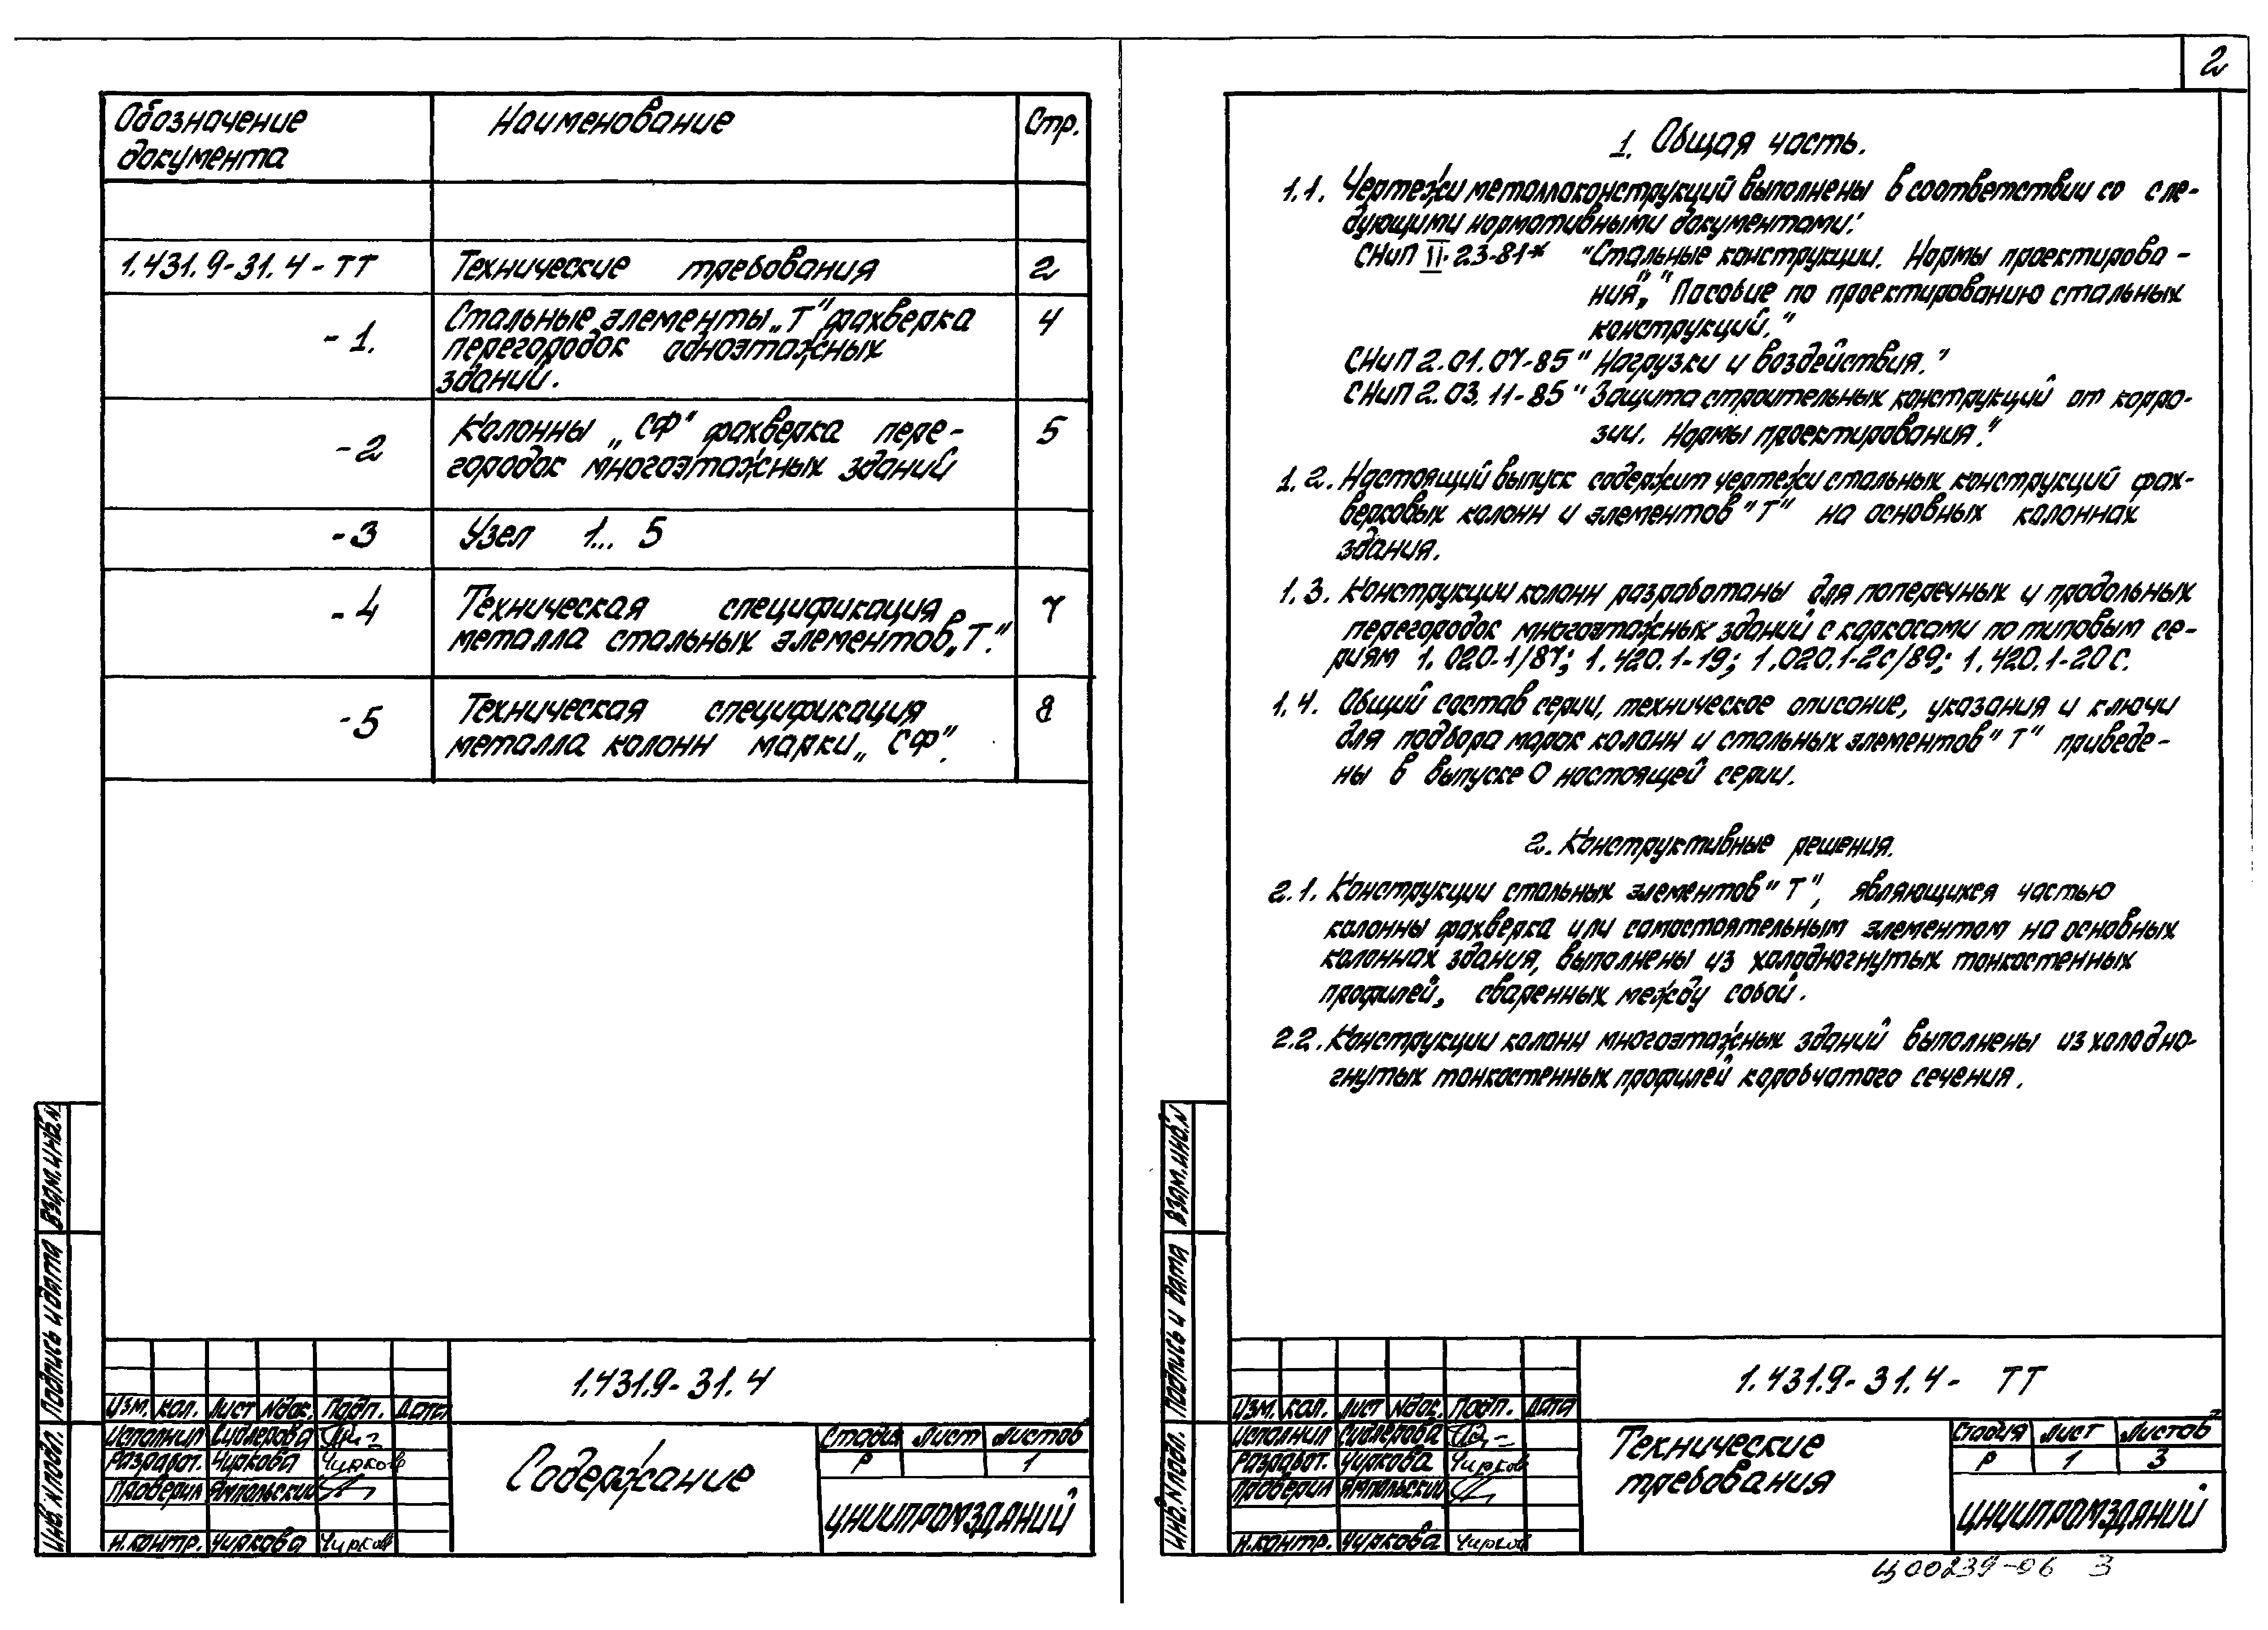 Обозначение Наименование Стр.
документа
1.431.9-31.4-ТТ Технические требования 2
-1. Стальные элементы „Т" фахверка 4
перегородок одноэтажных
зданий.
-2 Колонны „СФ" фахверка пере- 5
городок многоэтажных зданий
-3 Узел 1... 5
-4 Техническая спецификация 7
металла стальных элементов „Т".
-5 Техническая спецификация 8
металла колонн марки „СФ".
Взам.инв.N
Подпись и дата
Инв.N подл.
1.431.9-31.4
Изм. Кол. Лист Nдок. Подп. Дата
Исполнил Сидлерова
Разработ. Чиркова Чирков
Проверил Ямпольский
Н.контр. Чиркова Чирков
Содержание
Стадия Лист Листов
Р 1
ЦНИИПРОМЗДАНИЙ
2
1. Общая часть.
1.1. Чертежи металлоконструкций выполнены в соответствии со сле-
дующими нормативными документами:
СНиП II-23-81* "Стальные конструкции. Нормы проектирова-
ния", "Пособие по проектированию стальных
конструкций."
СНиП 2.01.07-85 "Нагрузки и воздействия."
СНиП 2.03.11-85 "Защита строительных конструкций от корро-
зии. Нормы проектирования."
1.2. Настоящий выпуск содержит чертежи стальных конструкций фах-
верковых колонн и элементов "Т" на основных колоннах
здания.
1.3. Конструкции колонн разработаны для поперечных и продольных
перегородок многоэтажных зданий с каркасами по типовым се-
риям 1.020-1/87; 1.420.1-19; 1.020.1-2с/89; 1.420.1-20с.
1.4. Общий состав серии, техническое описание, указания и ключи
для подбора марок колонн и стальных элементов "Т" приведе-
ны в выпуске 0 настоящей серии.
2. Конструктивные решения.
2.1. Конструкции стальных элементов "Т", являющихся частью
колонны фахверка или самостоятельным элементом на основных
колоннах здания, выполнены из холодногнутых тонкостенных
профилей, сваренных между собой.
2.2. Конструкции колонн многоэтажных зданий выполнены из холодно-
гнутых тонкостенных профилей коробчатого сечения.
Взам.инв.N
Подпись и дата
Инв.N подл.
1.431.9-31.4- ТТ
Изм. Кол. Лист Nдок. Подп. Дата
Исполнил Сидлерова
Разработ. Чиркова Чирков
Проверил Ямпольский
Н.контр. Чиркова Чирков
Технические
требования
Стадия Лист Листов
Р 1 3
ЦНИИПРОМЗДАНИЙ
Ц00239-06 3